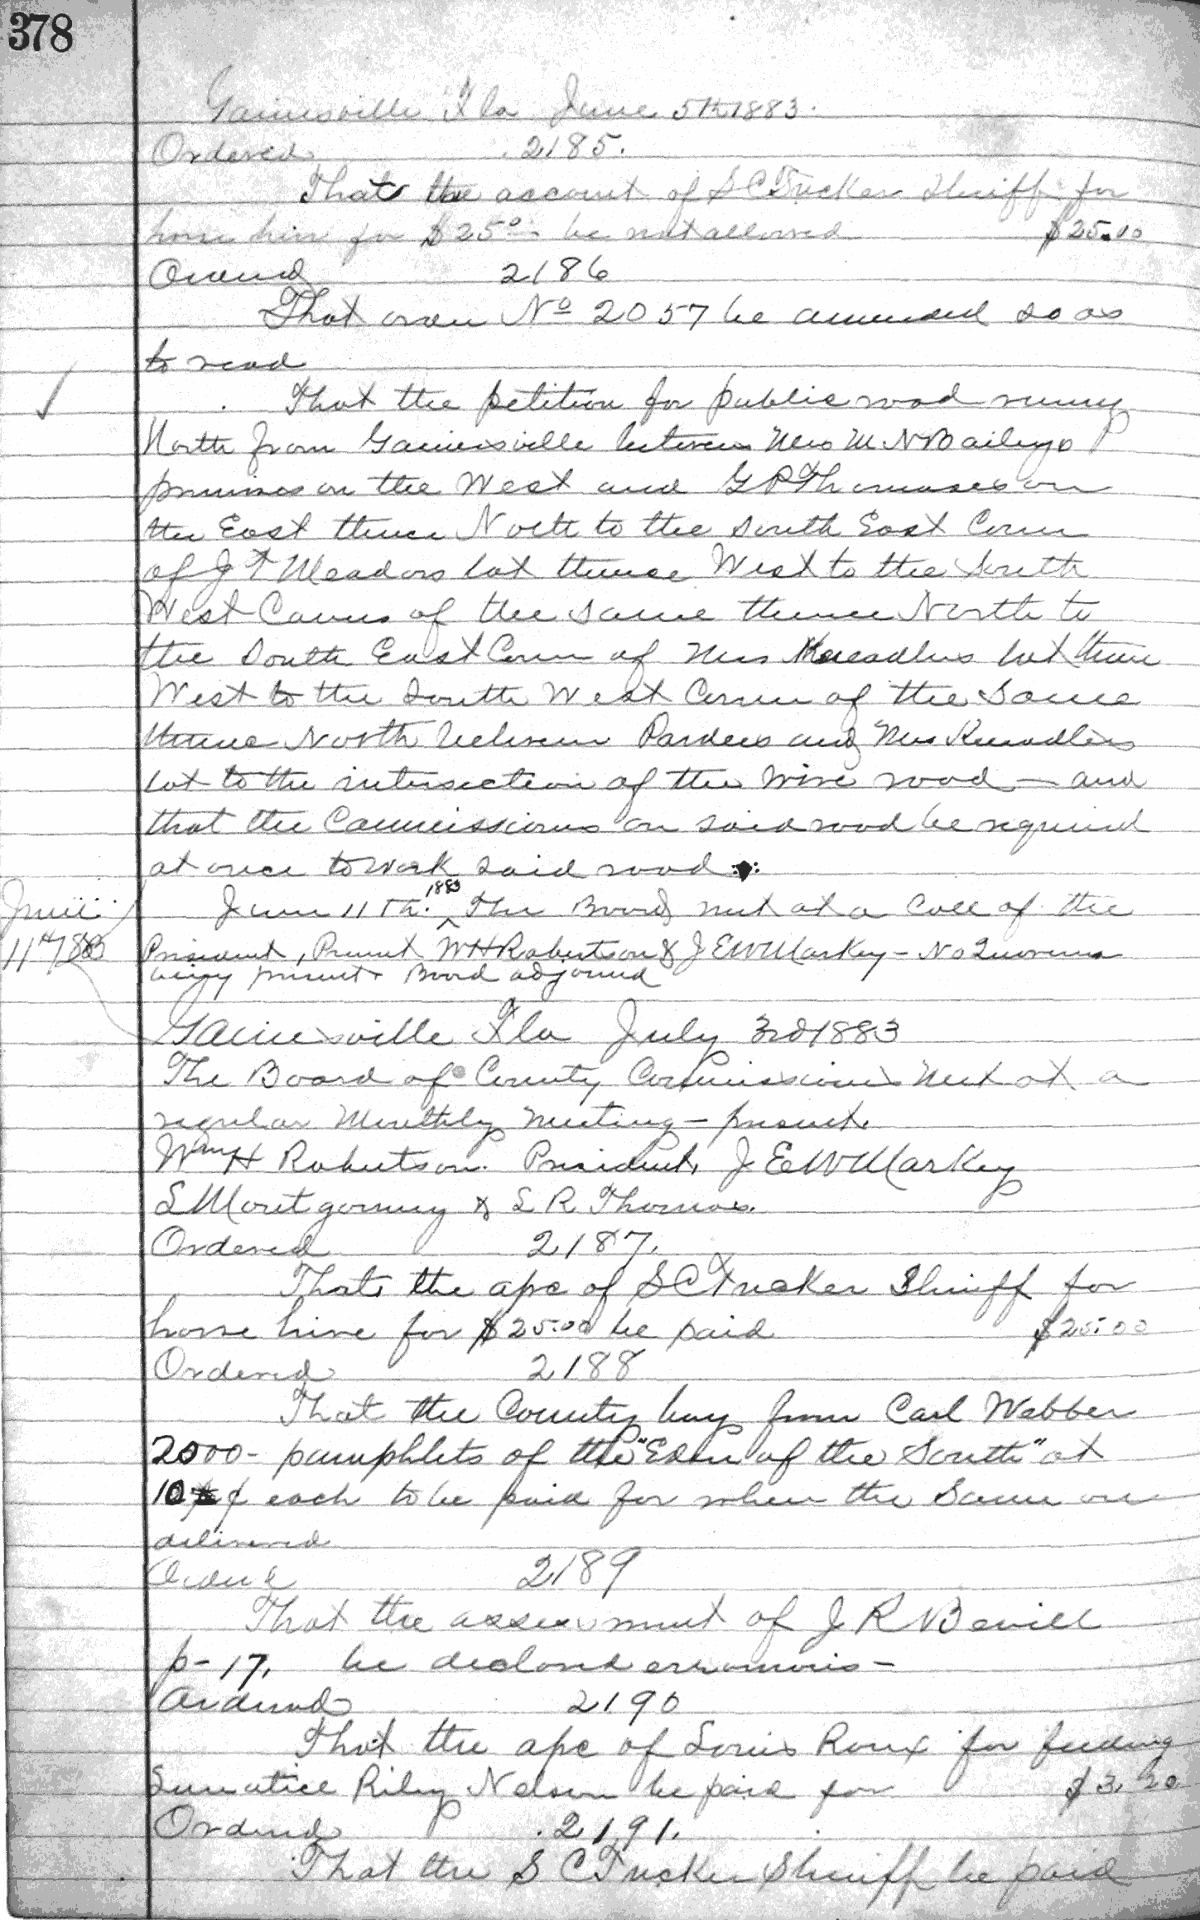 378
Gainesville Fla June 5th 1883.
Ordered 2185.
That the account of S C Tucker Sheriff for
horse hire for $25.00 be not allowed $25.00
Ordered 2186
That order No 2057 be amended so as
to read
That the petition for public road runing
North from Gainesville between Mrs M. N Baileys
premises on the West and G P Thomases on
the East thence North to the South East Corner
of J T Meadors lot thence West to the South
West Corner of the Same thence North to
the South East Corner of Mrs lot thence
West to the South West Corner of the Same
thence North between Pardees and Mrs
lot to the intersection of the Wire road — and
that the Commissioners on said road be required
at once to work said road
June
11th/83
June 11th. 1883 The Board met at a Call of the
President, Present W H Robertson & J E W Markey - No Quorum
being present Board adjourned
Gainesville Fla July 3rd 1883
The Board of County Commissioners Met at a
regular Monthly Meeting - present.
Wm H Robertson. President, J E W Markey
L Montgomery & S R Thomas.
Ordered 2187.
That the apc of S C Tucker Sheriff for
horse hire for $25.00 be paid $25.00
Ordered 2188
That the County buy from Carl Webber
2000 - pamphlets of the "Eden of the South" at
10 ¢ each to be paid for when the Same are
delivered
Ordered 2189
That the assessment of J R Bevill
p - 17, be declared erroneous -
Ordered 2190
That the apc of Louis Roux for feeding
Lunatice Riley Nelson be paid for $3.20
Ordered 2191.
That the S C Tucker Sheriff be paid